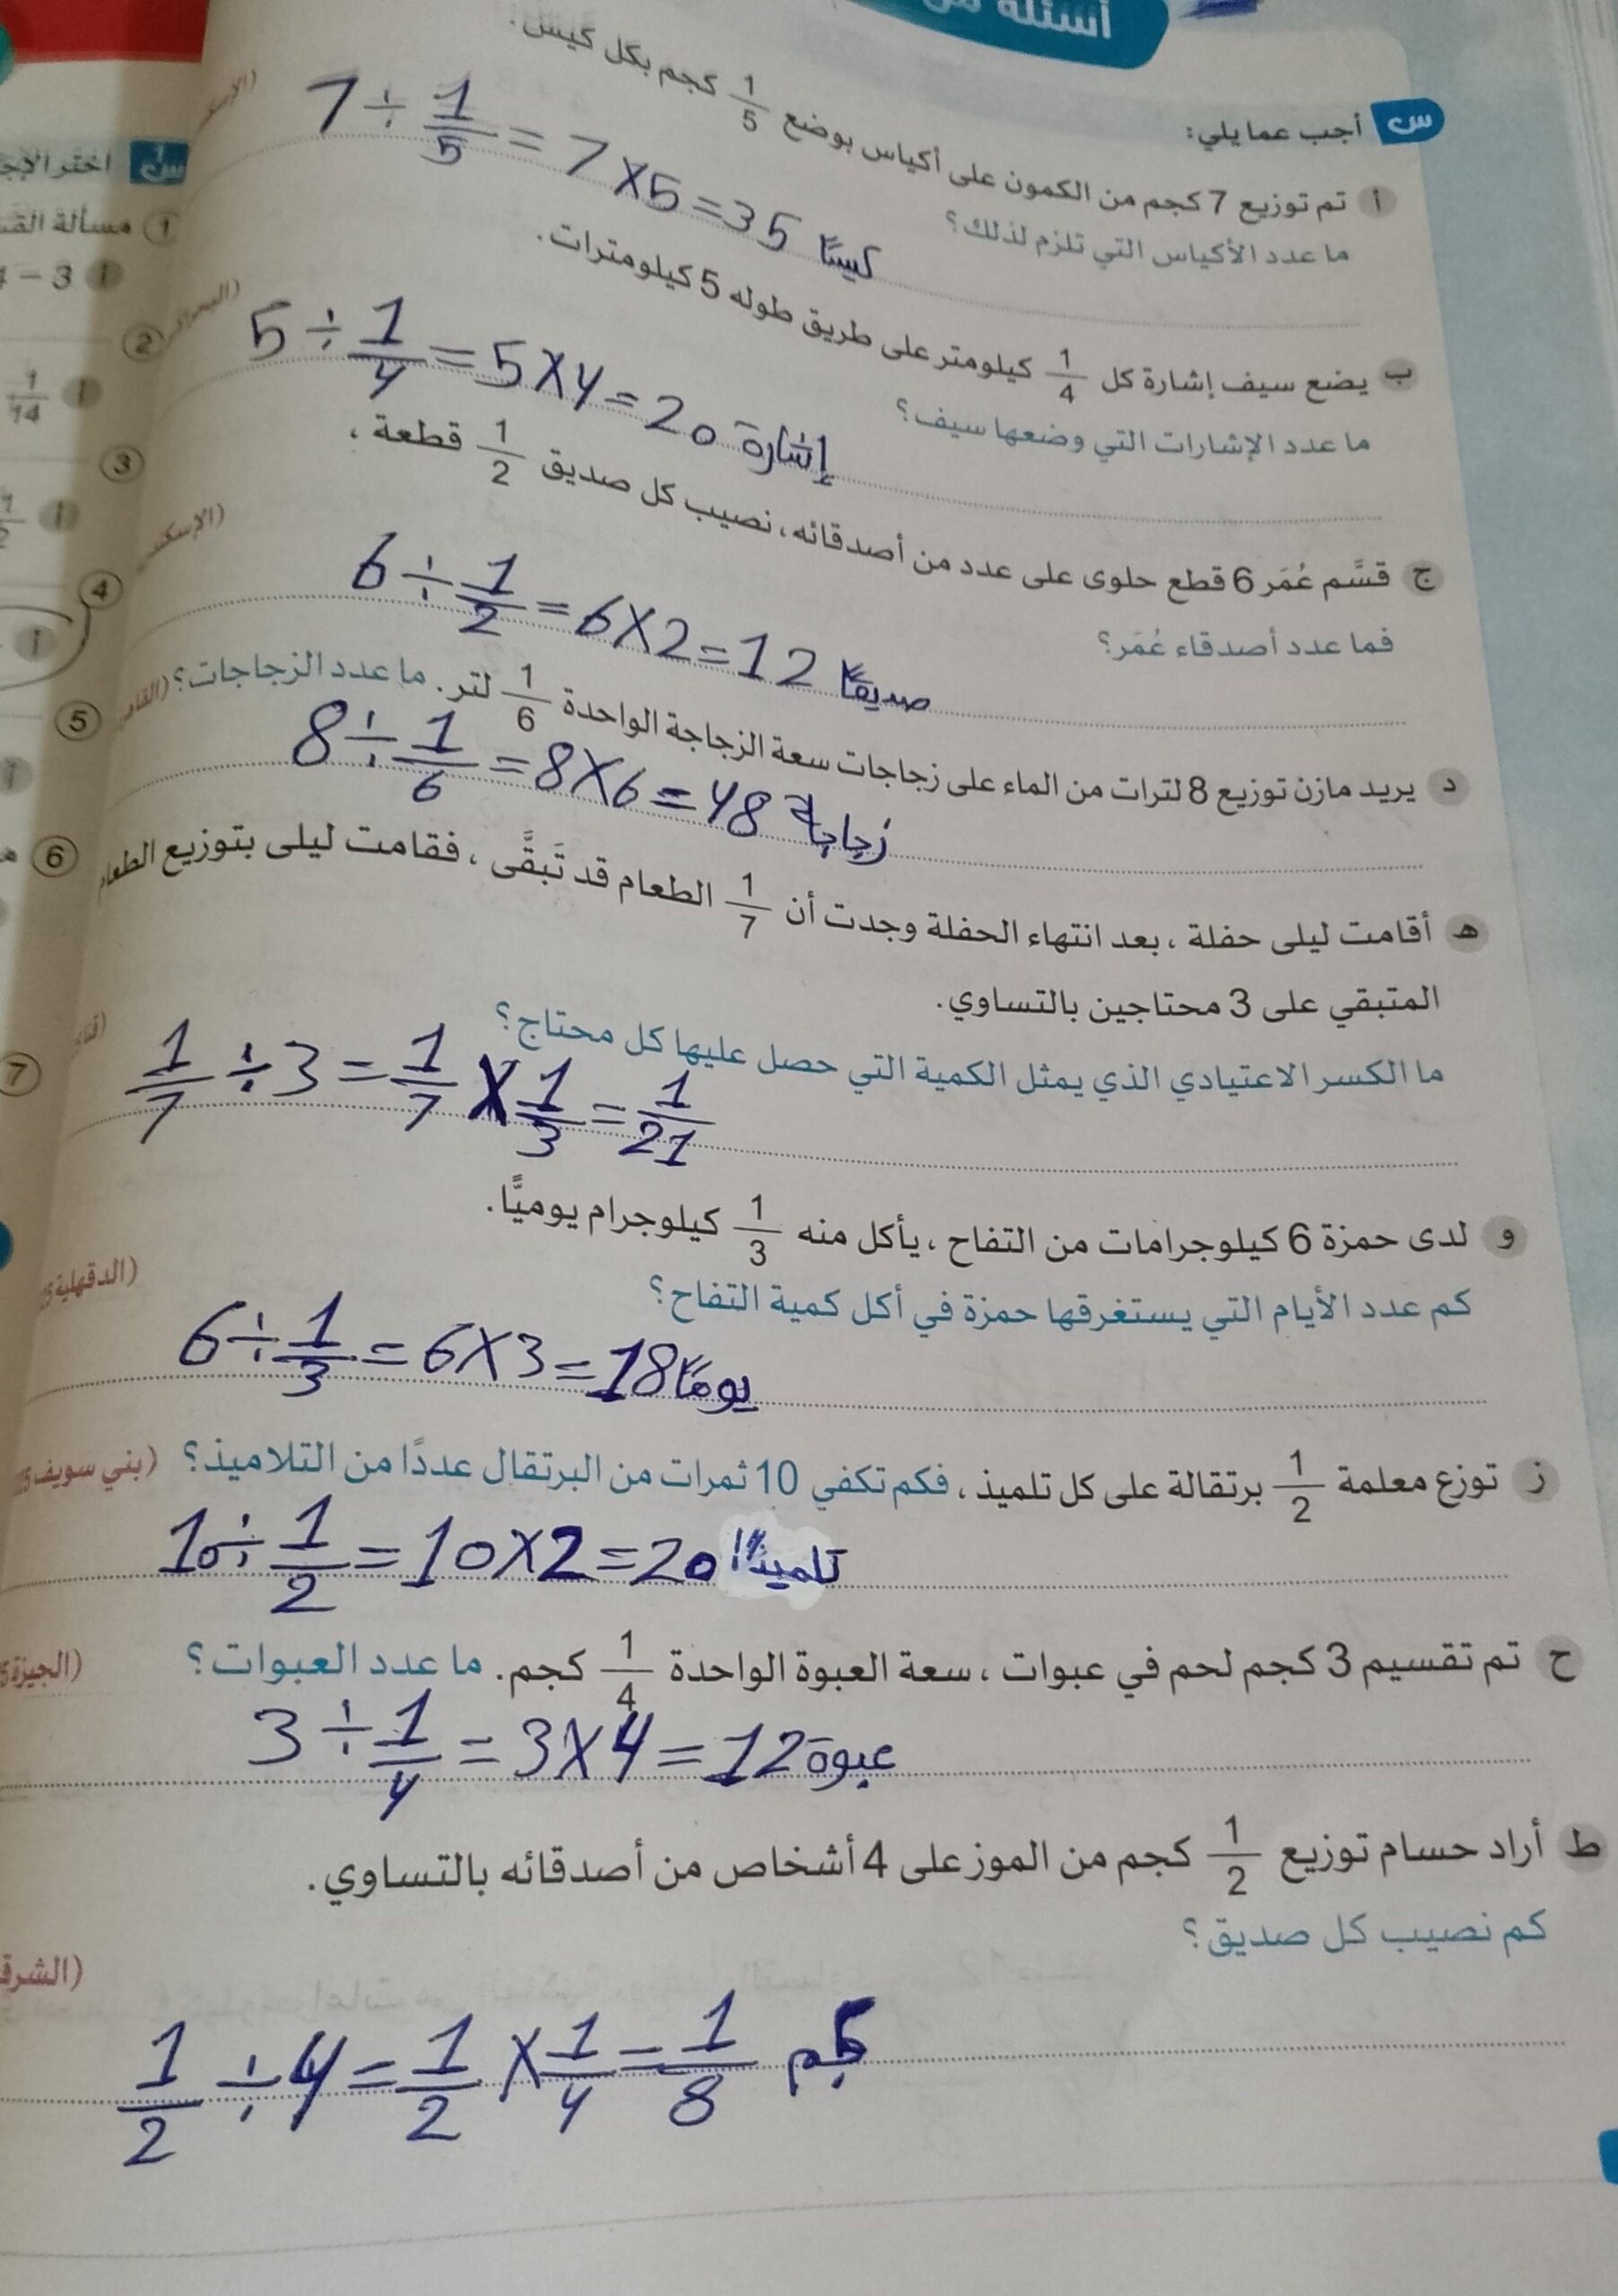 أسئلة من
س أجب عما يلي:
أ تم توزيع 7 كجم من الكمون على أكياس بوضع 1/5 كجم بكل كيس.
ما عدد الأكياس التي تلزم لذلك؟
7 ÷ 1/5 = 7 × 5 = 35 كيسًا
ب يضع سيف إشارة كل 1/4 كيلومتر على طريق طوله 5 كيلومترات.
ما عدد الإشارات التي وضعها سيف؟
5 ÷ 1/4 = 5 × 4 = 20 إشارة
ج قسَّم عُمَر 6 قطع حلوى على عدد من أصدقائه، نصيب كل صديق 1/2 قطعة،
فما عدد أصدقاء عُمَر؟
6 ÷ 1/2 = 6 × 2 = 12 صديقًا
د يريد مازن توزيع 8 لترات من الماء على زجاجات سعة الزجاجة الواحدة 1/6 لتر. ما عدد الزجاجات؟
8 ÷ 1/6 = 8 × 6 = 48 زجاجة
ه أقامت ليلى حفلة، بعد انتهاء الحفلة وجدت أن 1/7 الطعام قد تَبقَّى، فقامت ليلى بتوزيع الطعام
المتبقي على 3 محتاجين بالتساوي.
ما الكسر الاعتيادي الذي يمثل الكمية التي حصل عليها كل محتاج؟
1/7 ÷ 3 = 1/7 × 1/3 = 1/21
و لدى حمزة 6 كيلوجرامات من التفاح، يأكل منه 1/3 كيلوجرام يوميًّا.
كم عدد الأيام التي يستغرقها حمزة في أكل كمية التفاح؟ (الدقهلية
6 ÷ 1/3 = 6 × 3 = 18 يومًا
ز توزع معلمة 1/2 برتقالة على كل تلميذ، فكم تكفي 10 ثمرات من البرتقال عددًا من التلاميذ؟ (بني سويف
10 ÷ 1/2 = 10 × 2 = 20 تلميذًا
ح تم تقسيم 3 كجم لحم في عبوات، سعة العبوة الواحدة 1/4 كجم. ما عدد العبوات؟ (الجيزة
3 ÷ 1/4 = 3 × 4 = 12 عبوة
ط أراد حسام توزيع 1/2 كجم من الموز على 4 أشخاص من أصدقائه بالتساوي.
كم نصيب كل صديق؟
1/2 ÷ 4 = 1/2 × 1/4 = 1/8 كجم
اختر الإجا
1 مسألة القس
أ 3 –
2
أ 1/14
3
أ
4
أ
5
أ
6
7